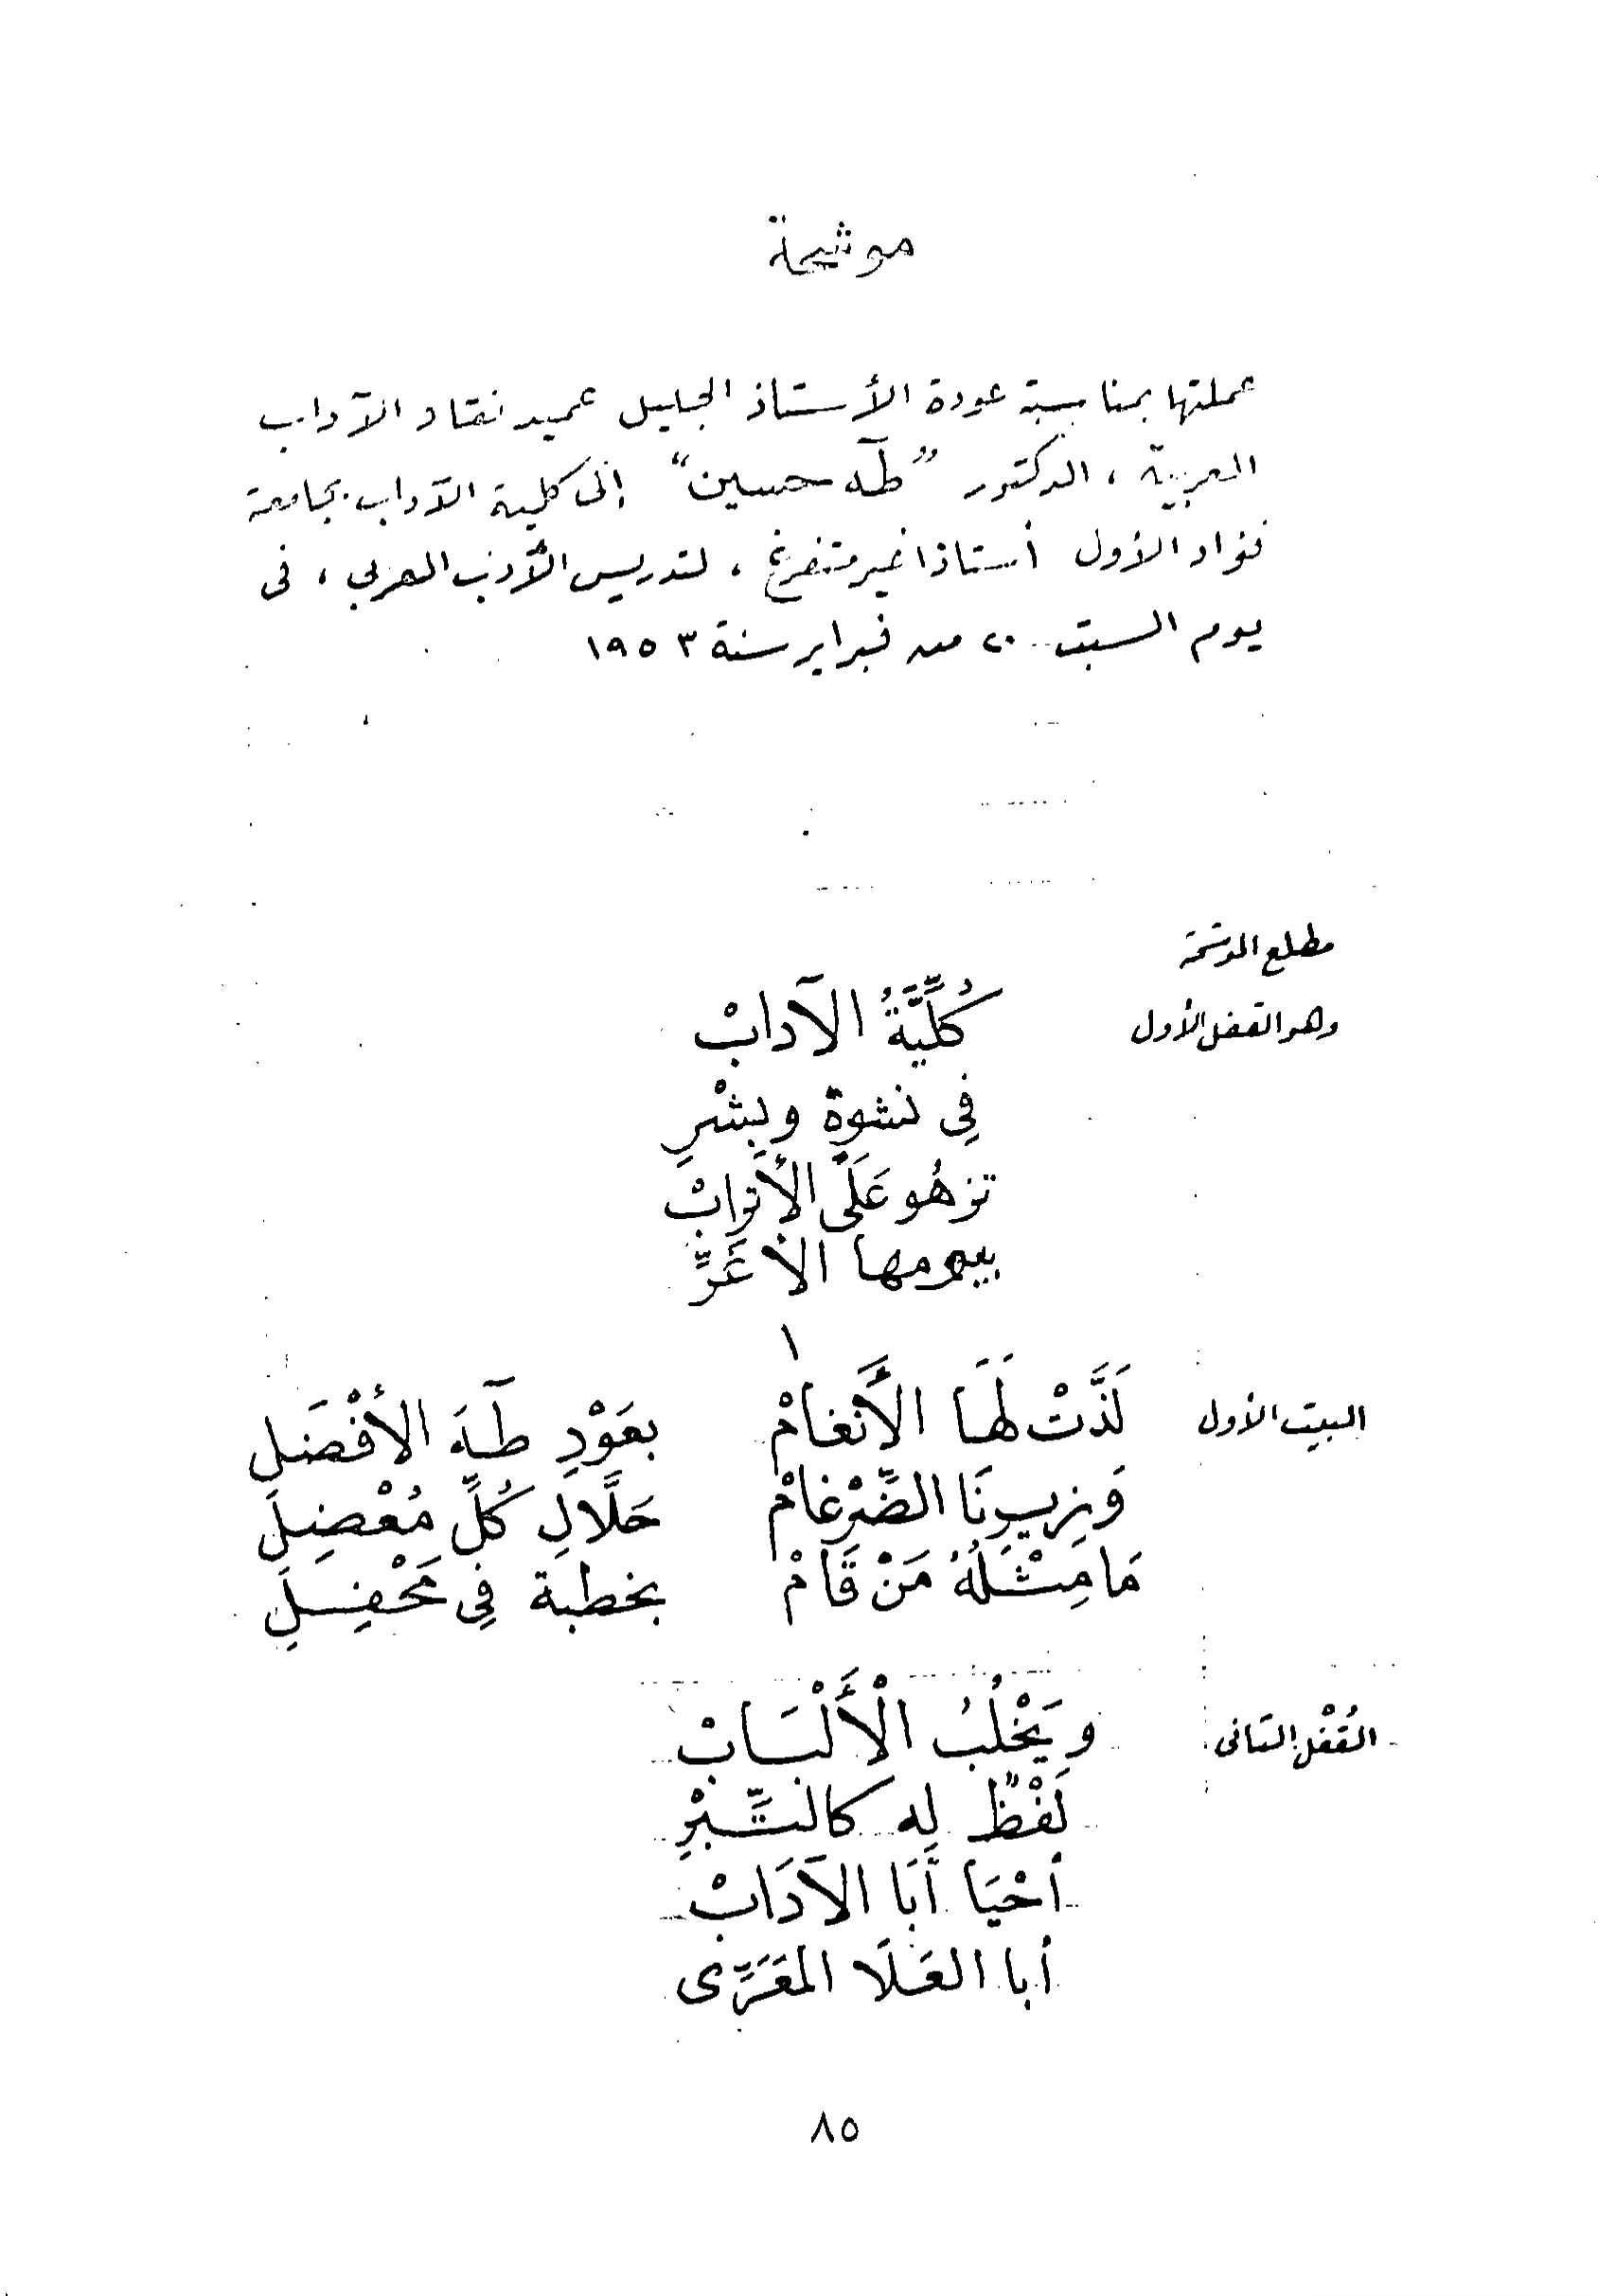 موشحة
عملتها بمناسبة عودة الأستاذ الجليل عميد نقاد الآداب
العربية ، الدكتور "طٓه حسين" إلى كلية الآداب بجامعة
فؤاد الأول أستاذا غير متفرغ ، لتدريس الأدب العربي ، فى
يوم السبت ٢٠ من فبراير سنة ١٩٥٣
مطلع الموشحة
وهو القفل الأول
كُلِّيَّةُ الآدابْ
فِى نشوةٍ وبِشْرِ
تزهُو عَلَى الأَترابْ
بيومها الأَغَرِّ
١
البيت الأول
لَذَّتْ لَهَا الأَنغامْ بعَوْدِ طٓهَ الأفْضَلِ
وَزِيرِنَا الضِّرْغامْ حَلَّالِ كُلِّ مُعْضِلِ
مَا مِثْلُهُ مَنْ قَامْ بخطبة فِى مَحْفِلِ
القُفْل الثانى
ويَخْلُبُ الْأَلْبَابْ
لَفْظٌ له كالتِّبْرِ
أحْيَا أَبَا الآدَابْ
أبا العَلَا المَعَرِّى
٨٥